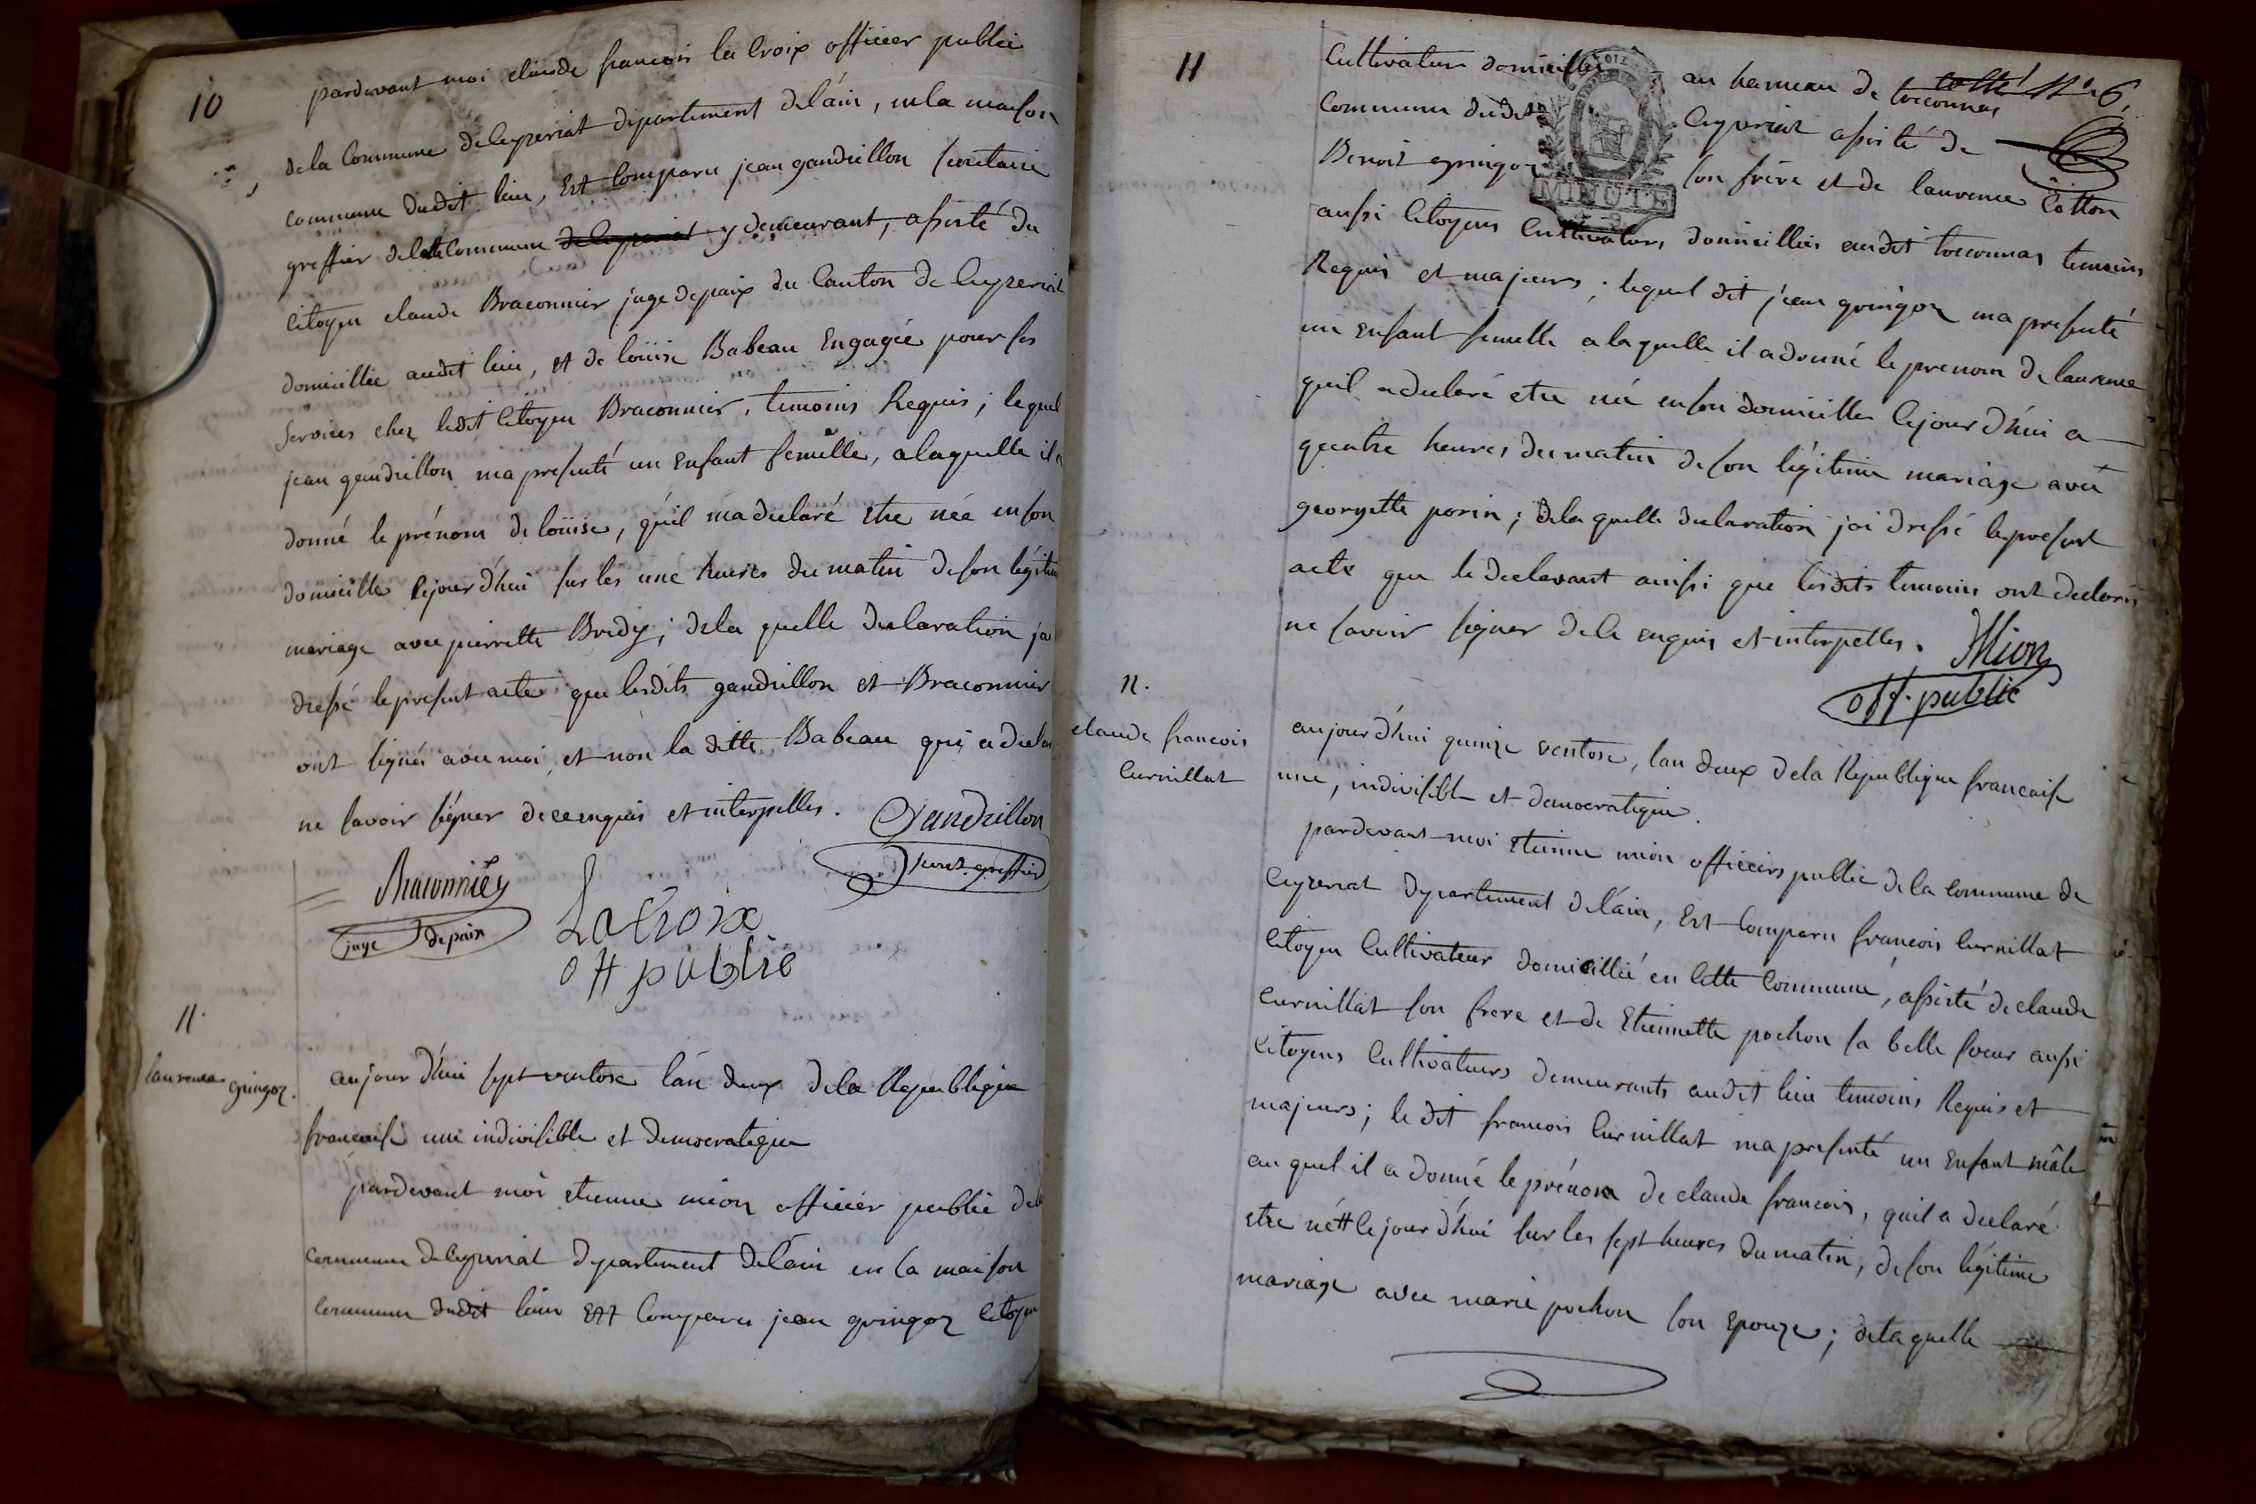 10
pardevant moi claude francois la Croix officier public
de la Commune de Ceyzeriat département de l'ain, en la maison
commune dudit lieu, Est Comparu jean gandrillon secretaire
greffier de laditte Commune y demeurant, assisté du
Citoyen claude Braconnier juge de paix du Canton de Ceyzeriat
domicillié audit lieu, et de loüise Babeau Engagée pour ses
services chez ledit Citoyen Braconnier, temoins Requis; lequel
jean gandrillon ma presenté un Enfant femelle, a laquelle il a
donné le prénom de loüise, qu'il ma declaré etre née en son
domicille cejourd'hui sur les une heures du matin de son légitime
mariage avec pierrette Bridy; de la quelle declaration j'ai
dressé le present acte que lesdits gandrillon et Braconnier
ont signés avec moi et non la ditte Babeau qui a declaré
ne savoir signer de ce enquis et interpellés.
Gandrillon
secret. greffier
Braconnier
juge de paix
La Croix
off public
11.
laurence gringoz.
aujourd'hui sept ventose l'an deux de la Republique
francaise une indivisible et democratique
pardevant moi etienne mion officier public de la
commune de ceyzeriat departement de l'ain en la maison
commune dudit lieu Est Comparu jean gringoz Citoyen
11
cotté N.º 6.
Cultivateur domicillié au hameau de tocconnas
Commune dudit Ceyzeriat assisté de
Benoit gringoz son frère et de laurence Cotton
aussi Citoyens Cultivateurs domicilliés audit tocconnas temoins
Requis et majeurs; lequel dit jean gringoz ma presenté
un enfant femelle a laquelle il a donné le prenom de laurence
quil a declaré etre née en son domicille Cejourd'hui a
quatre heures du matin de son légitime mariage avec
georgette porin; de la quelle declaration j'ai dressé le present
acte que le declarant ainsi que lesdits temoins ont declarés
ne savoir signer de ce enquis et interpellés.
Mion
off. public
11.
claude francois
Curnillat
aujourd'hui quinze ventose, l'an deux de la Republique francaise
une, indivisible et democratique.
pardevant moi Etienne mion officiers public de la commune de
Ceyzeriat departement de l'ain, Est Comparu francois Curnillat
Citoyen Cultivateur domicillié en Cette Commune, assisté de claude
Curnillat son frere et de Etiennette pochon sa belle soeur aussi
Citoyens Cultivateurs demeurants audit lieu temoins Requis et
majeurs; le dit francois Curnillat ma presenté un Enfant mâle
au quel il a donné le prénom de claude francois, quil a declaré
etre né Cejourd'hui sur les sept heures du matin, de son légitime
mariage avec marie pochon son Epouze; de laquelle
MINUTE